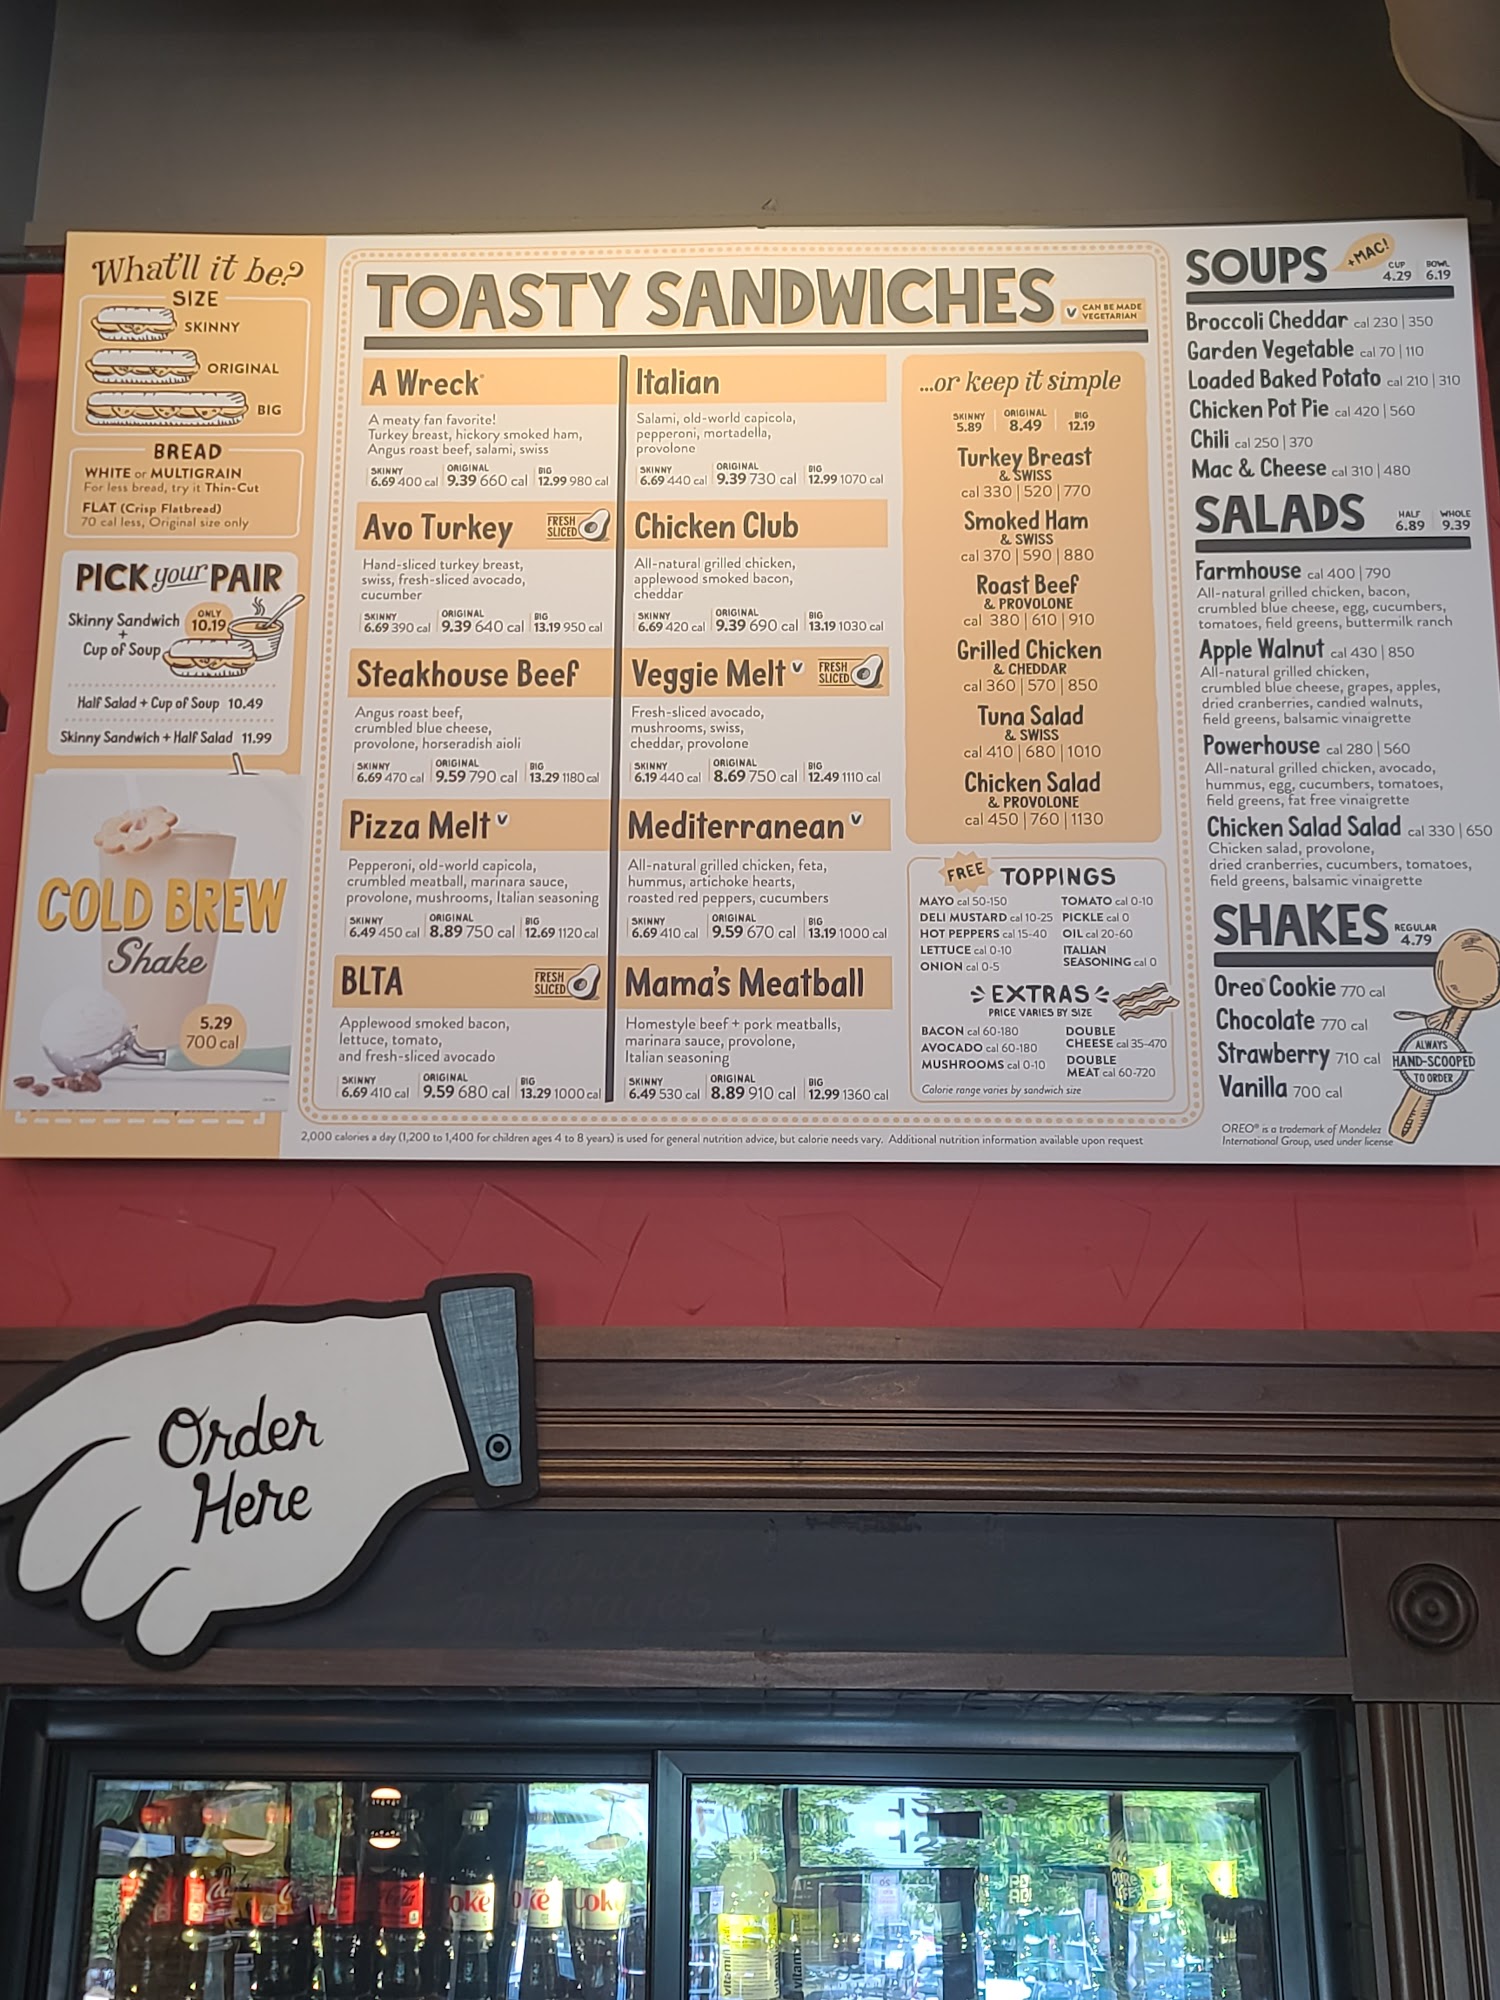 What'll it be?
SIZE
SKINNY
ORIGINAL
BIG
BREAD
WHITE or MULTIGRAIN
For less bread, try it Thin-Cut
FLAT (Crisp Flatbread)
70 cal less, Original size only
PICK your PAIR
Skinny Sandwich
+
Cup of Soup
ONLY
10.19
Half Salad + Cup of Soup 10.49
Skinny Sandwich + Half Salad 11.99
COLD BREW
Shake
5.29
700 cal
TOASTY SANDWICHES
V CAN BE MADE
VEGETARIAN
A Wreck®
A meaty fan favorite!
Turkey breast, hickory smoked ham,
Angus roast beef, salami, swiss
SKINNY ORIGINAL BIG
6.69 400 cal 9.39 660 cal 12.99 980 cal
Avo Turkey
FRESH
SLICED
Hand-sliced turkey breast,
swiss, fresh-sliced avocado,
cucumber
SKINNY ORIGINAL BIG
6.69 390 cal 9.39 640 cal 13.19 950 cal
Steakhouse Beef
Angus roast beef,
crumbled blue cheese,
provolone, horseradish aioli
SKINNY ORIGINAL BIG
6.69 470 cal 9.59 790 cal 13.29 1180 cal
Pizza Melt V
Pepperoni, old-world capicola,
crumbled meatball, marinara sauce,
provolone, mushrooms, Italian seasoning
SKINNY ORIGINAL BIG
6.49 450 cal 8.89 750 cal 12.69 1120 cal
BLTA
FRESH
SLICED
Applewood smoked bacon,
lettuce, tomato,
and fresh-sliced avocado
SKINNY ORIGINAL BIG
6.69 410 cal 9.59 680 cal 13.29 1000 cal
Italian
Salami, old-world capicola,
pepperoni, mortadella,
provolone
SKINNY ORIGINAL BIG
6.69 440 cal 9.39 730 cal 12.99 1070 cal
Chicken Club
All-natural grilled chicken,
applewood smoked bacon,
cheddar
SKINNY ORIGINAL BIG
6.69 420 cal 9.39 690 cal 13.19 1030 cal
Veggie Melt V
FRESH
SLICED
Fresh-sliced avocado,
mushrooms, swiss,
cheddar, provolone
SKINNY ORIGINAL BIG
6.19 440 cal 8.69 750 cal 12.49 1110 cal
Mediterranean V
All-natural grilled chicken, feta,
hummus, artichoke hearts,
roasted red peppers, cucumbers
SKINNY ORIGINAL BIG
6.69 410 cal 9.59 670 cal 13.19 1000 cal
Mama's Meatball
Homestyle beef + pork meatballs,
marinara sauce, provolone,
Italian seasoning
SKINNY ORIGINAL BIG
6.49 530 cal 8.89 910 cal 12.99 1360 cal
...or keep it simple
SKINNY ORIGINAL BIG
5.89 8.49 12.19
Turkey Breast
& SWISS
cal 330 | 520 | 770
Smoked Ham
& SWISS
cal 370 | 590 | 880
Roast Beef
& PROVOLONE
cal 380 | 610 | 910
Grilled Chicken
& CHEDDAR
cal 360 | 570 | 850
Tuna Salad
& SWISS
cal 410 | 680 | 1010
Chicken Salad
& PROVOLONE
cal 450 | 760 | 1130
FREE TOPPINGS
MAYO cal 50-150
DELI MUSTARD cal 10-25
HOT PEPPERS cal 15-40
LETTUCE cal 0-10
ONION cal 0-5
TOMATO cal 0-10
PICKLE cal 0
OIL cal 20-60
ITALIAN
SEASONING cal 0
EXTRAS
PRICE VARIES BY SIZE
BACON cal 60-180
AVOCADO cal 60-180
MUSHROOMS cal 0-10
DOUBLE
CHEESE cal 35-470
DOUBLE
MEAT cal 60-720
Calorie range varies by sandwich size
2,000 calories a day (1,200 to 1,400 for children ages 4 to 8 years) is used for general nutrition advice, but calorie needs vary. Additional nutrition information available upon request
SOUPS
+MAC!
CUP BOWL
4.29 6.19
Broccoli Cheddar cal 230 | 350
Garden Vegetable cal 70 | 110
Loaded Baked Potato cal 210 | 310
Chicken Pot Pie cal 420 | 560
Chili cal 250 | 370
Mac & Cheese cal 310 | 480
SALADS
HALF WHOLE
6.89 9.39
Farmhouse cal 400 | 790
All-natural grilled chicken, bacon,
crumbled blue cheese, egg, cucumbers,
tomatoes, field greens, buttermilk ranch
Apple Walnut cal 430 | 850
All-natural grilled chicken,
crumbled blue cheese, grapes, apples,
dried cranberries, candied walnuts,
field greens, balsamic vinaigrette
Powerhouse cal 280 | 560
All-natural grilled chicken, avocado,
hummus, egg, cucumbers, tomatoes,
field greens, fat free vinaigrette
Chicken Salad Salad cal 330 | 650
Chicken salad, provolone,
dried cranberries, cucumbers, tomatoes,
field greens, balsamic vinaigrette
SHAKES
REGULAR
4.79
Oreo® Cookie 770 cal
Chocolate 770 cal
Strawberry 710 cal
Vanilla 700 cal
ALWAYS
HAND-SCOOPED
TO ORDER
OREO® is a trademark of Mondelez
International Group, used under license
Order
Here
oke
oke
Coke
vitamin